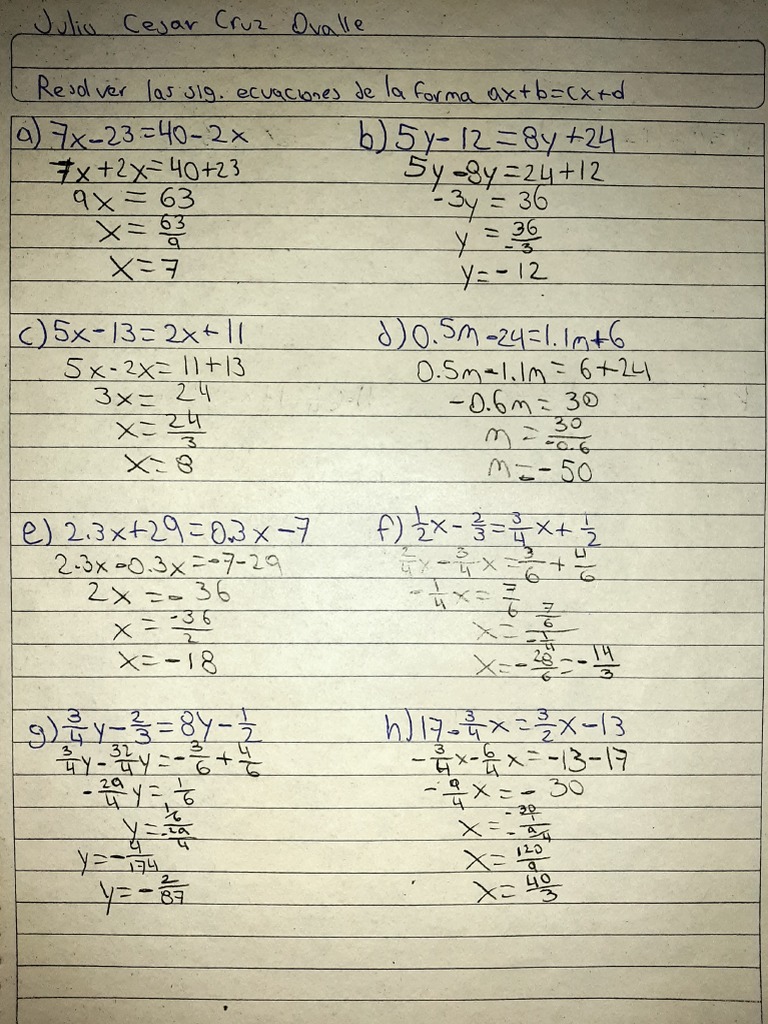 Julio Cesar Cruz Ovalle
Resolver las sig. ecuaciones de la forma ax+b=cx+d
a) 7x-23=40-2x
7x+2x=40+23
9x = 63
x = 63/9
x=7
b) 5y-12=8y+24
5y-8y=24+12
-3y = 36
y = 36/-3
y=-12
c) 5x-13=2x+11
5x-2x=11+13
3x= 24
x= 24/3
x=8
d) 0.5m-24=1.1m+6
0.5m-1.1m= 6+24
-0.6m= 30
m = 30/-0.6
m=-50
e) 2.3x+29=0.3x-7
2.3x-0.3x=-7-29
2x =- 36
x = -36/2
x=-18
f) 1/2x-2/3=3/4x+1/2
2/4x-3/4x=3/6+4/6
-1/4x= 7/6
x= 7/6/-1/4
x=-28/6=-14/3
g) 3/4y-2/3=8y-1/2
3/4y-32/4y=-3/6+4/6
-29/4y= 1/6
y= 1/6/-29/4
y=-4/174
y=-2/87
h) 17-3/4x=3/2x-13
-3/4x-6/4x=-13-17
-9/4x=- 30
x= -30/1/-9/4
x= 120/9
x= 40/3